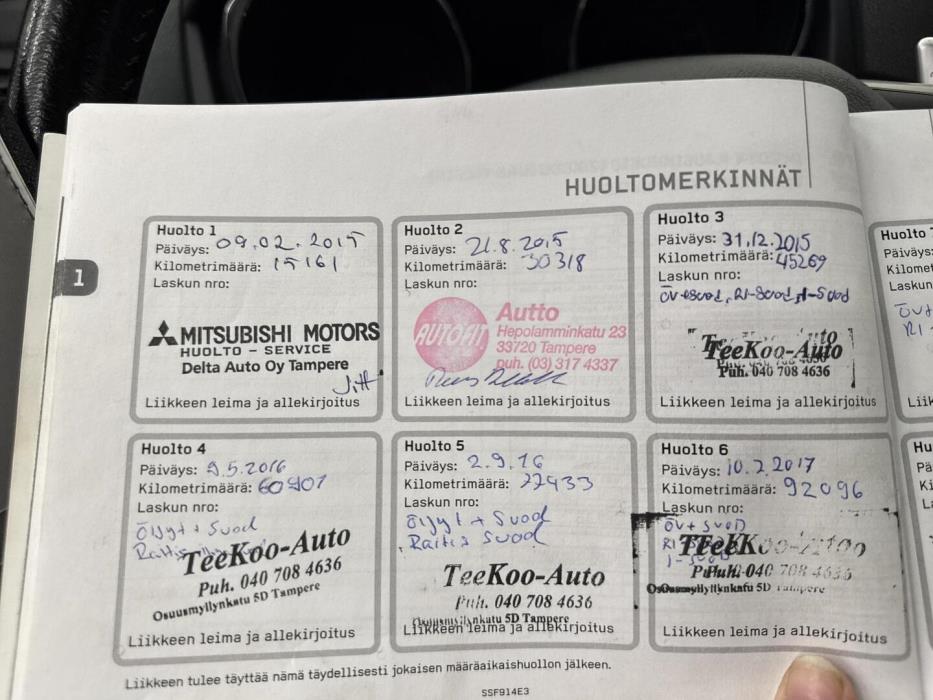 HUOLTOMERKINNÄT
1
Huolto 1
Päiväys: 09.02.2015
Kilometrimäärä: 15161
Laskun nro:
MITSUBISHI MOTORS
HUOLTO - SERVICE
Delta Auto Oy Tampere
Liikkeen leima ja allekirjoitus
Huolto 2
Päiväys: 21.8.2015
Kilometrimäärä: 30318
Laskun nro:
AUTOFIT
Autto
Hepolamminkatu 23
33720 Tampere
puh. (03) 317 4337
Liikkeen leima ja allekirjoitus
Huolto 3
Päiväys: 31.12.2015
Kilometrimäärä: 45269
Laskun nro:
TeeKoo-Auto
Puh. 040 708 4636
Liikkeen leima ja allekirjoitus
Huolto 4
Päiväys: 9.5.2016
Kilometrimäärä: 60901
Laskun nro:
Öljyt + Suod
TeeKoo-Auto
Puh. 040 708 4636
Osuusmyllynkatu 5D Tampere
Liikkeen leima ja allekirjoitus
Huolto 5
Päiväys: 2.9.16
Kilometrimäärä: 77433
Laskun nro:
Öljyt + Suod
Raitis Suod
TeeKoo-Auto
Puh. 040 708 4636
Osuusmyllynkatu 5D Tampere
Liikkeen leima ja allekirjoitus
Huolto 6
Päiväys: 10.2.2017
Kilometrimäärä: 92096
Laskun nro:
ÖV + SUOD
TeeKoo-Auto
Puh. 040 708 4636
Osuusmyllynkatu 5D Tampere
Liikkeen leima ja allekirjoitus
Liikkeen tulee täyttää nämä täydellisesti jokaisen määräaikaishuollon jälkeen.
SSF914E3